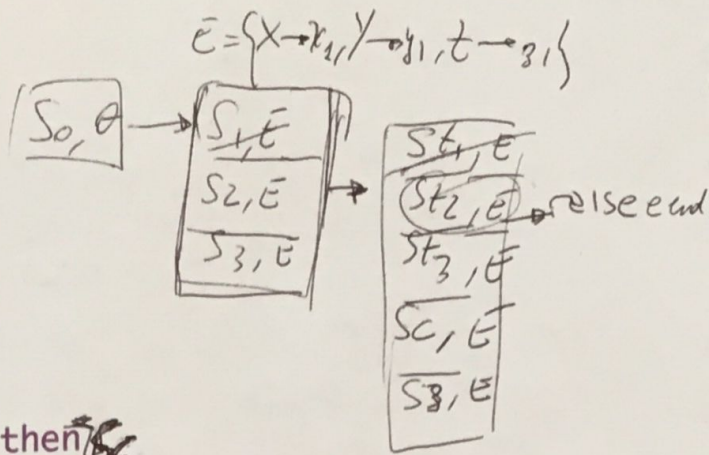 E = {X→x1, Y→y1, t→z1}
S0, θ
S1, E
S2, E
S3, E
St1, E
St2, E
St3, E
Sc, E
S3, E
then